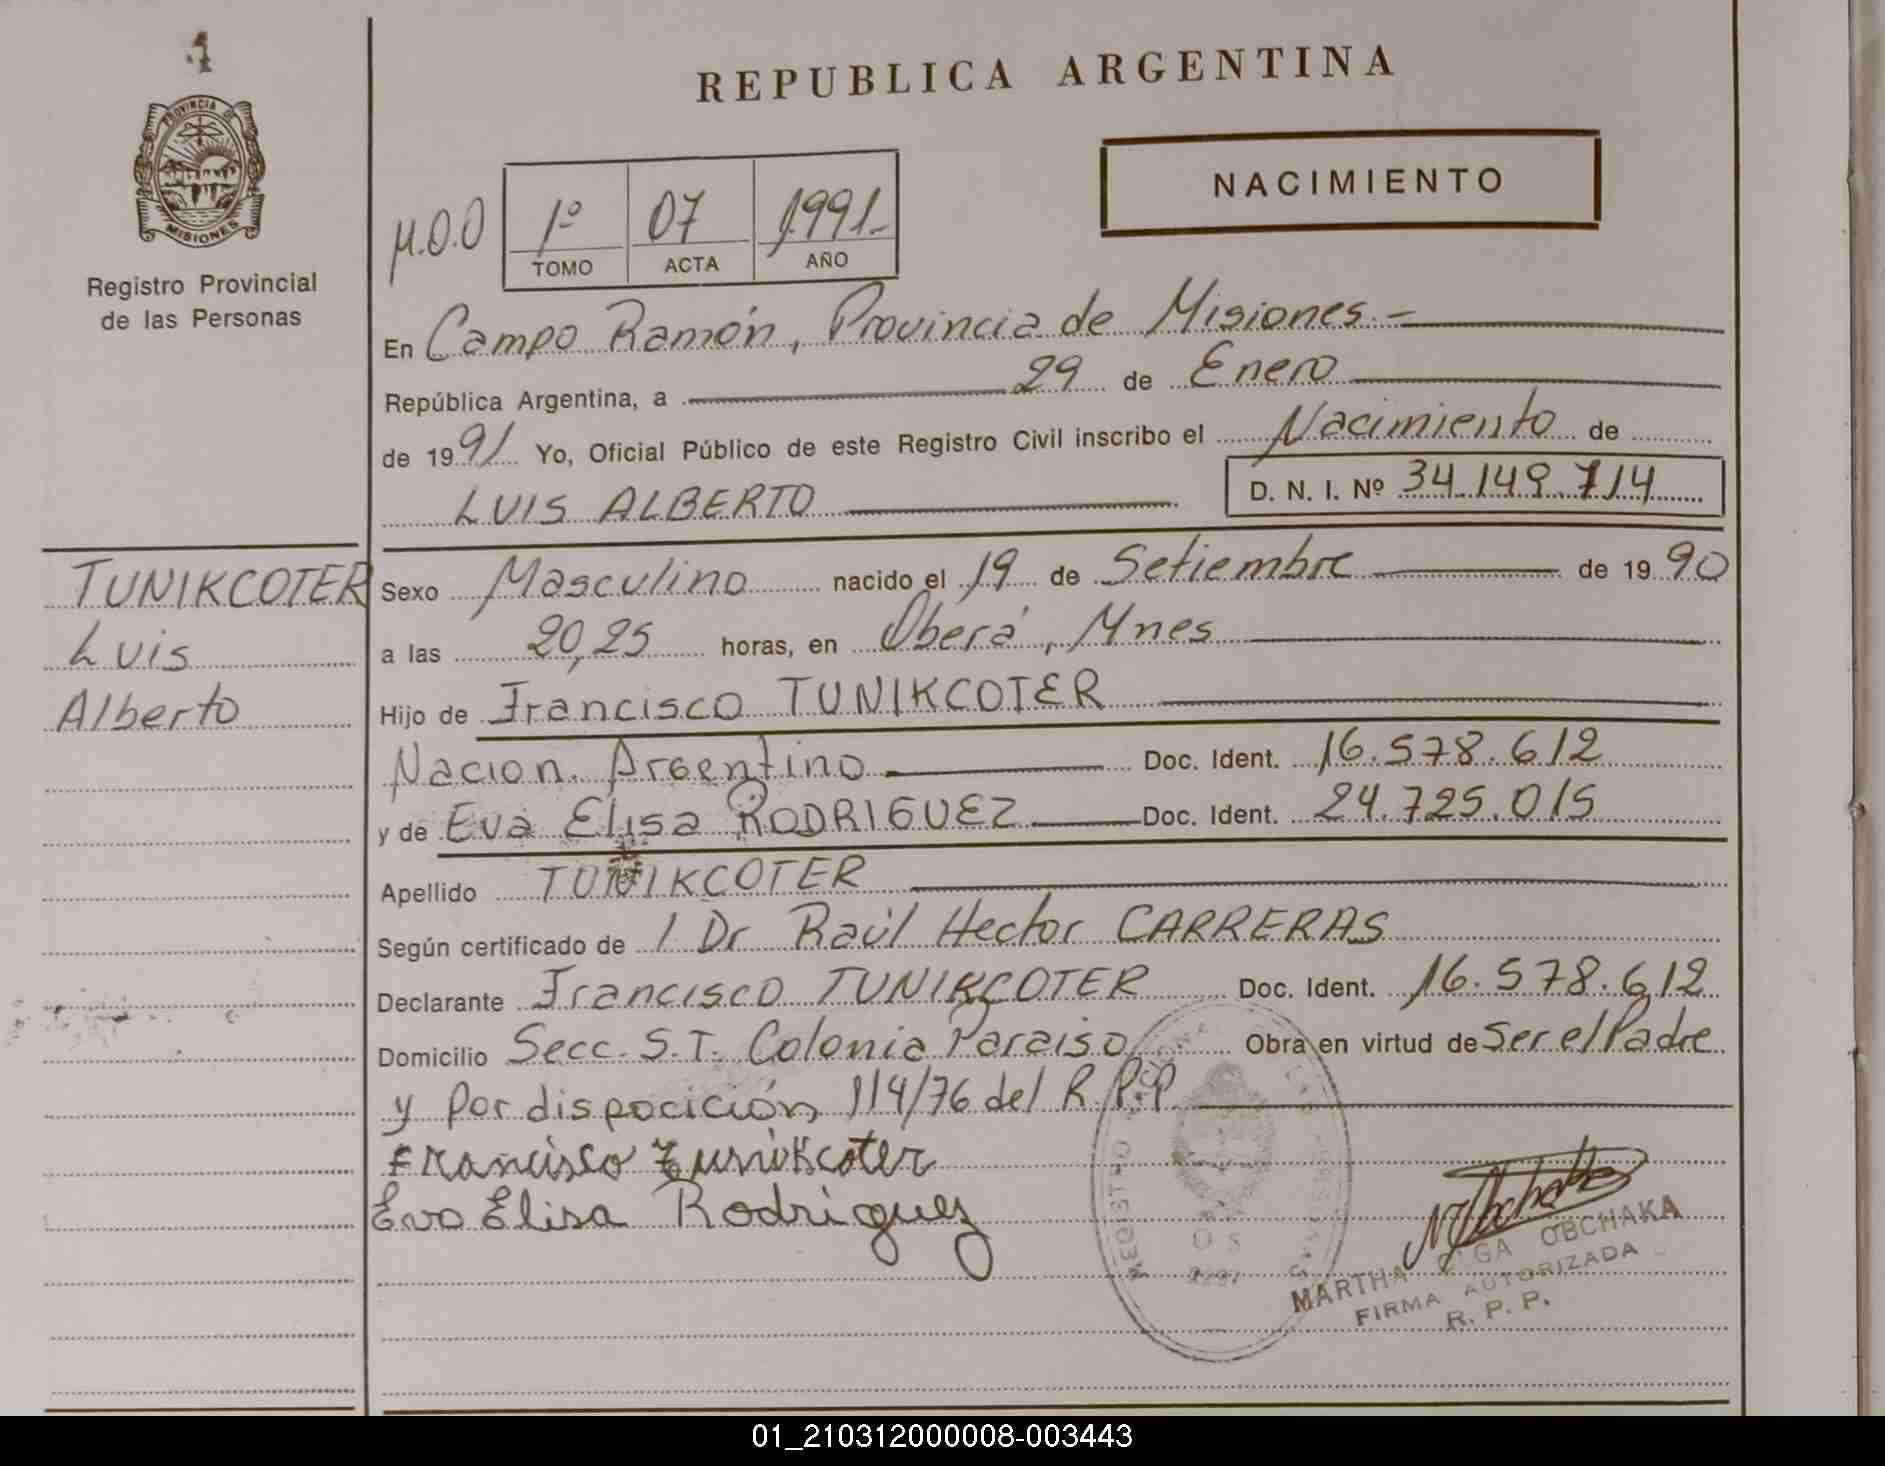 1
PROVINCIA DE
MISIONES
Registro Provincial
de las Personas
REPUBLICA ARGENTINA
NACIMIENTO
M.O.O 1º 07 1991-
TOMO ACTA AÑO
En Campo Ramón, Provincia de Misiones.-
República Argentina, a 29 de Enero
de 1991 Yo, Oficial Público de este Registro Civil inscribo el Nacimiento de
LUIS ALBERTO D. N. I. Nº 34.149.714
TUNIKCOTER
Luis
Alberto
Sexo Masculino nacido el 19 de Setiembre de 1990
a las 20,25 horas, en Oberá, Mnes
Hijo de Francisco TUNIKCOTER
Nacion. Argentino Doc. Ident. 16.578.612
y de Eva Elisa RODRIGUEZ Doc. Ident. 24.725.015
Apellido TUNIKCOTER
Según certificado de 1 Dr Raúl Hector CARRERAS
Declarante Francisco TUNIKCOTER Doc. Ident. 16.578.612
Domicilio Secc. S.T. Colonia Paraiso Obra en virtud de Ser el Padre
y por disposición 114/76 del R.P.P.
Francisco Tunikcoter
Eva Elisa Rodriguez
REGISTRO
MARTHA OLGA OBCHAKA
FIRMA AUTORIZADA
R. P. P.
01_210312000008-003443